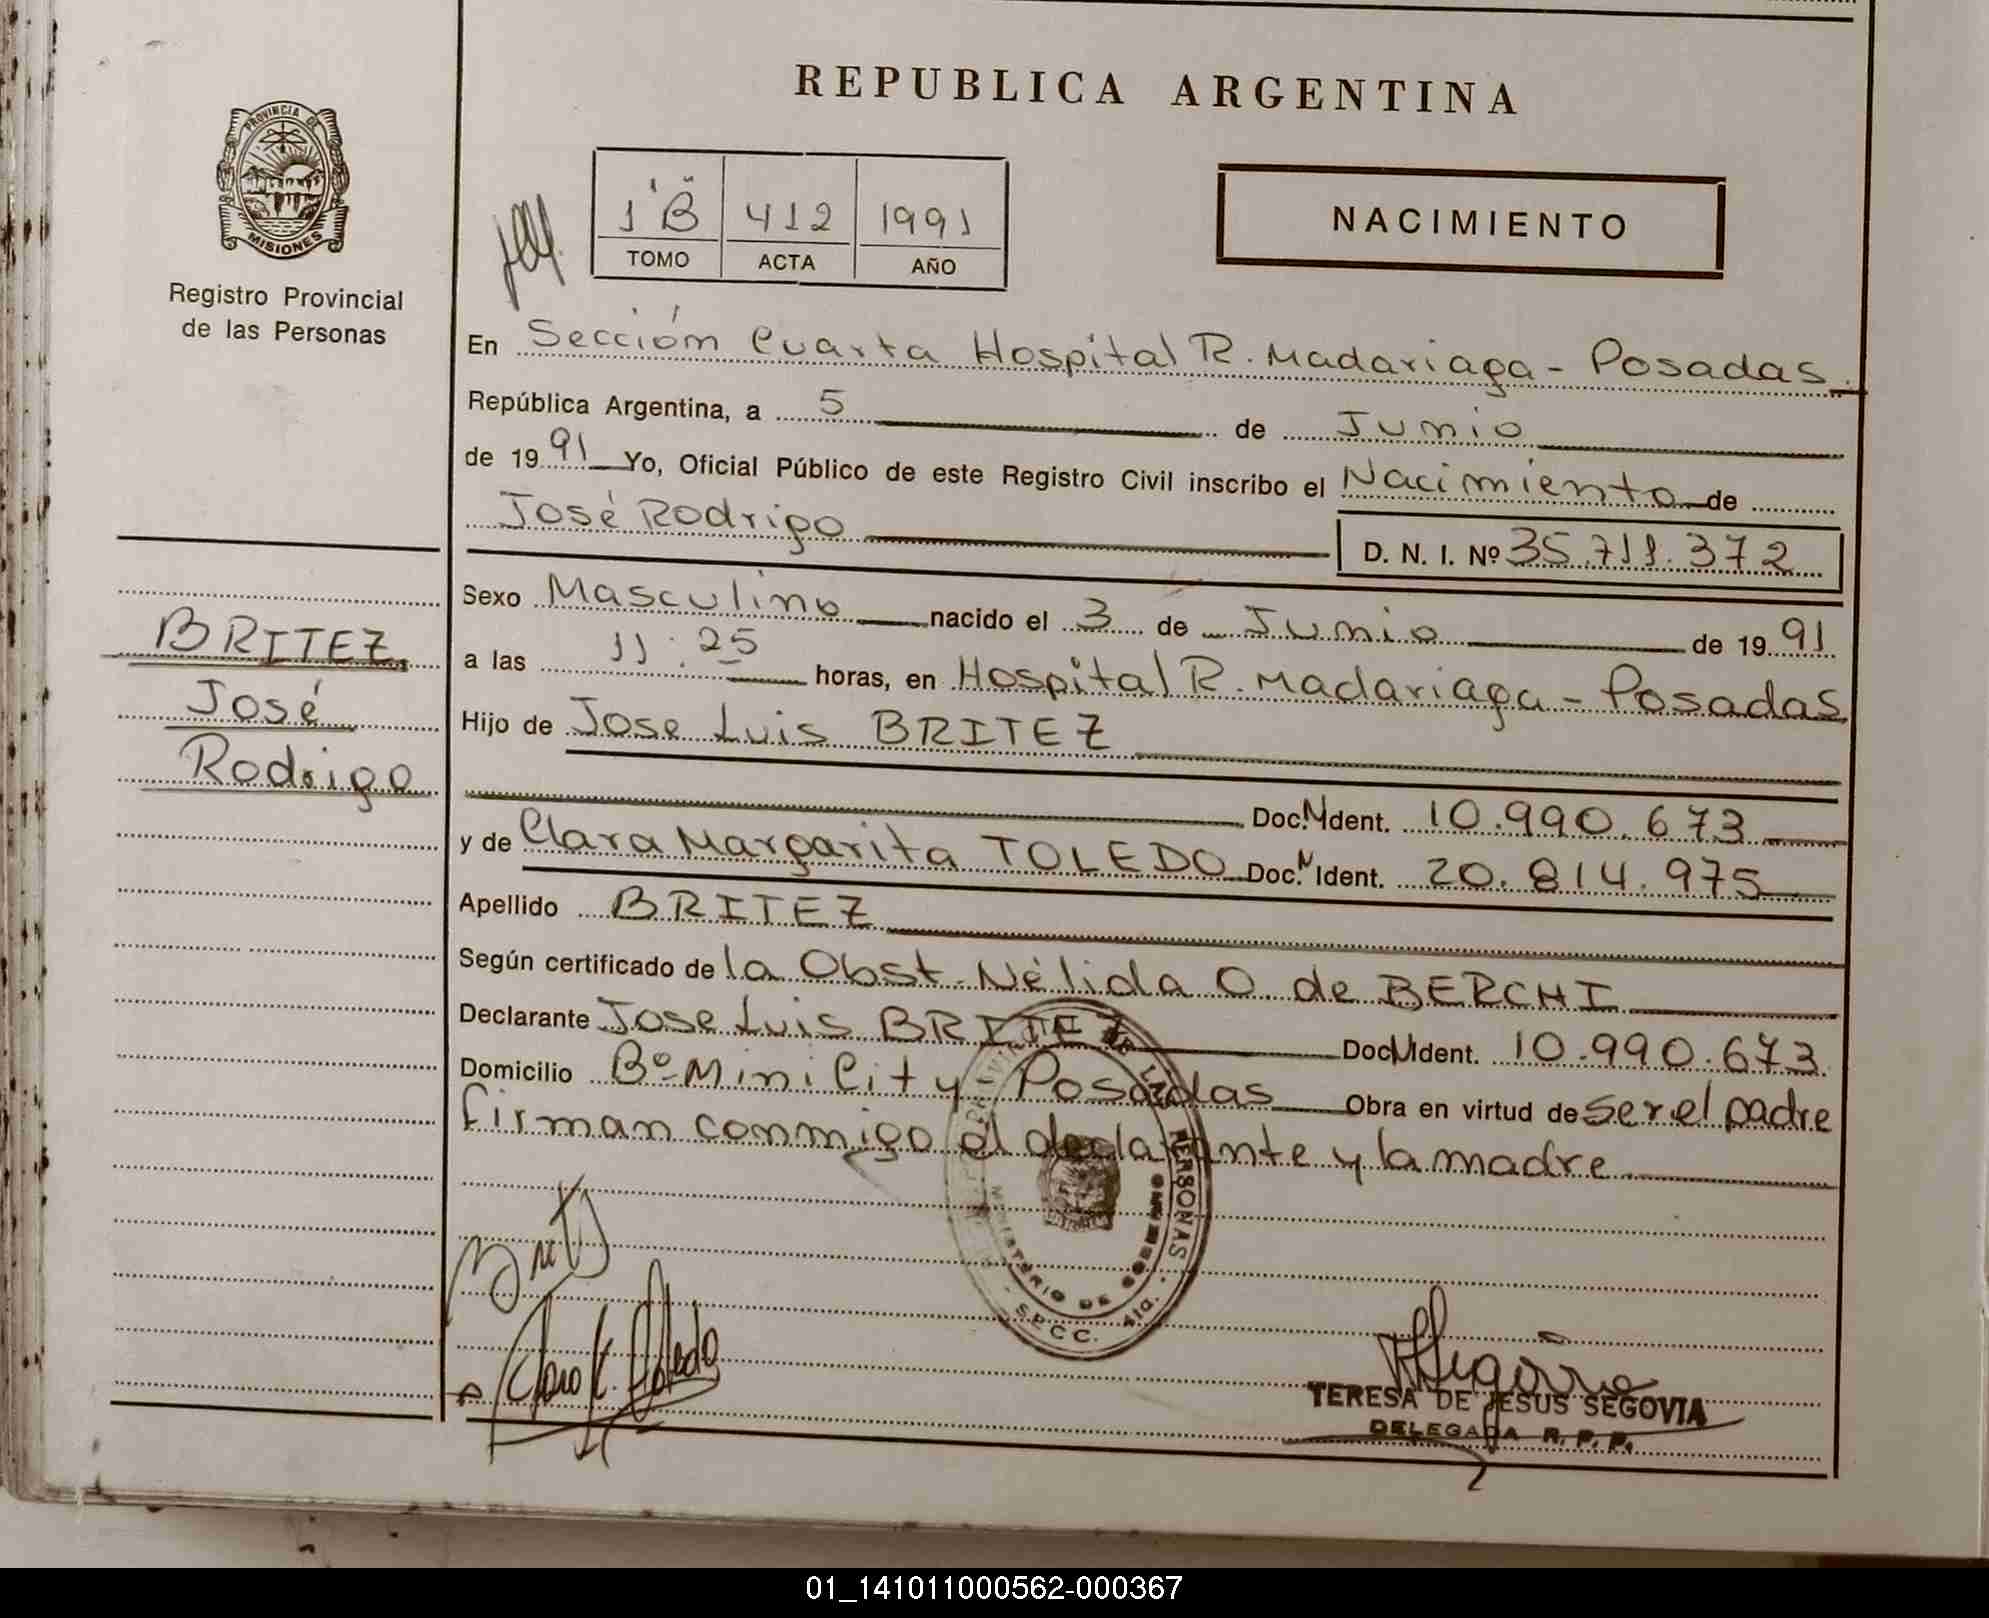 REPUBLICA ARGENTINA
PROVINCIA DE
MISIONES
Registro Provincial
de las Personas
1º B
412
1991
TOMO
ACTA
AÑO
NACIMIENTO
En Sección Cuarta Hospital R. Madariaga - Posadas
República Argentina, a 5 de Junio
de 1991 Yo, Oficial Público de este Registro Civil inscribo el Nacimiento de
José Rodrigo D. N. I. Nº 35.711.372
Sexo Masculino nacido el 3 de Junio de 1991
a las 11:25 horas, en Hospital R. Madariaga - Posadas
Hijo de Jose Luis BRITEZ
Doc. N Ident. 10.990.673
y de Clara Margarita TOLEDO Doc. N Ident. 20.814.975
Apellido BRITEZ
Según certificado de la Obst. Nélida O. de BERCHI
Declarante Jose Luis BRITEZ Doc N Ident. 10.990.673
Domicilio Bº Mini City - Posadas Obra en virtud de ser el padre
firman conmigo el declarante y la madre
BRITEZ
José
Rodrigo
DE LAS PERSONAS
MINISTERIO DE
S.R.C.C.
TERESA DE JESUS SEGOVIA
DELEGADA R. P. P.
01_141011000562-000367